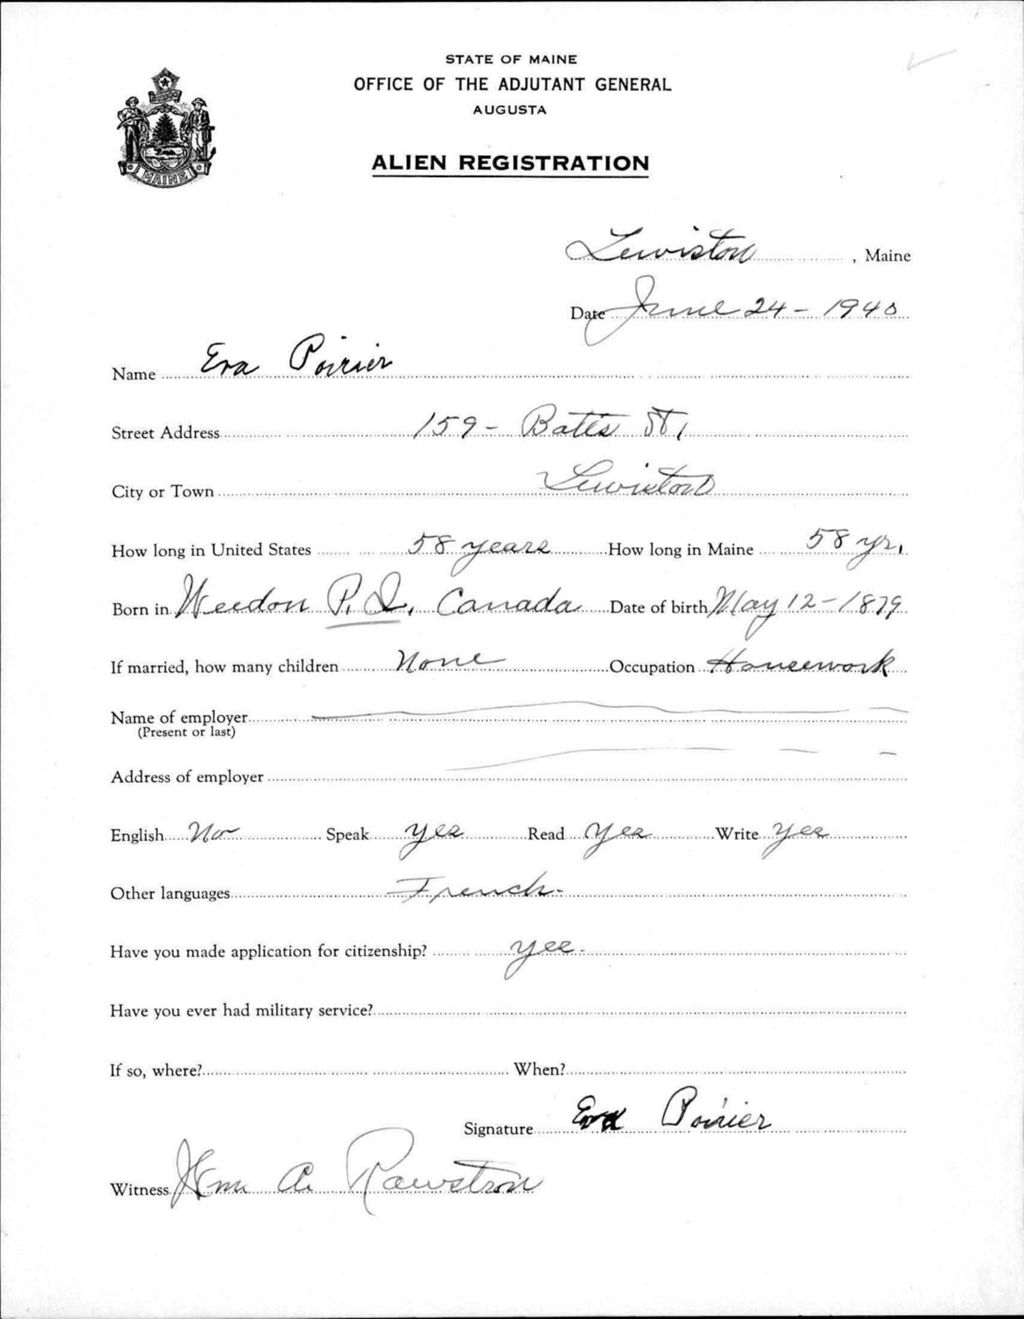 STATE OF MAINE
OFFICE OF THE ADJUTANT GENERAL
AUGUSTA
ALIEN REGISTRATION
MAINE
Lewiston, Maine
Date June 24 - 1940
Name Eva Poirier
Street Address 159 - Bates St,
City or Town Lewiston
How long in United States 58 years How long in Maine 58 yr.
Born in Weedon P. Q. Canada Date of birth May 12 - 1879
If married, how many children None Occupation Housework
Name of employer
(Present or last)
Address of employer
English No Speak yes Read Yes Write yes
Other languages French -
Have you made application for citizenship? yes -
Have you ever had military service?
If so, where? When?
Signature Eva Poirier
Witness Wm A. Rawstron